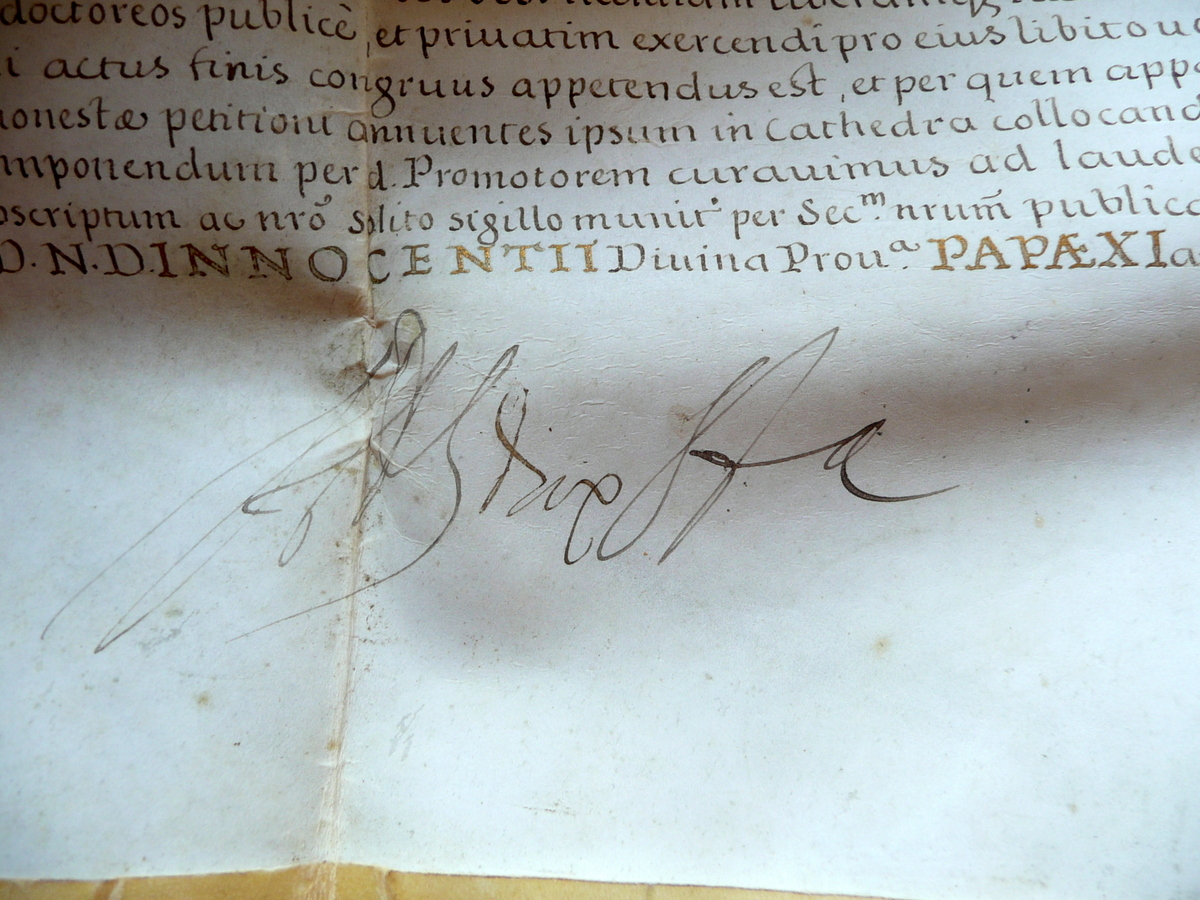 doctoreos publicè, et priuatim exercendi pro eius libito
i actus finis congruus appetendus est, et per quem app
honestæ petitioni annuentes ipsum in Cathedra collocand
mponendum per d. Promotorem curauimus ad laude
oscriptum ac nrō solito sigillo munir per Sec.m nrum̄ public
D.N.D.INNOCENTII Diuina Prou.a PAPÆ XI a